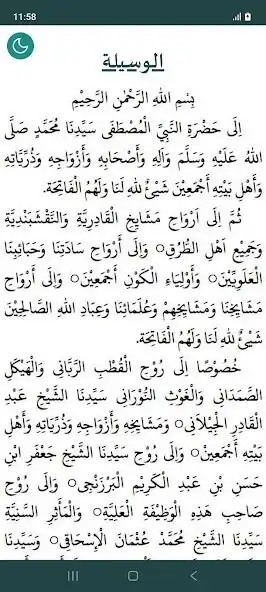 11:58
الوسيلة
بِسْمِ اللهِ الرَّحْمٰنِ الرَّحِيْمِ
إِلَى حَضْرَةِ النَّبِيِّ الْمُصْطَفَى سَيِّدِنَا مُحَمَّدٍ صَلَّى
اللهُ عَلَيْهِ وَسَلَّمَ وَآلِهِ وَأَصْحَابِهِ وَأَزْوَاجِهِ وَذُرِّيَّاتِهِ
وَأَهْلِ بَيْتِهِ أَجْمَعِيْنَ شَيْئٌ لِلهِ لَنَا وَلَهُمُ الْفَاتِحَة.
ثُمَّ إِلَى اَرْوَاحِ مَشَايِخِ الْقَادِرِيَّةِ وَالنَّقْشَبَنْدِيَّةِ
وَجَمِيْعِ اَهْلِ الطُّرُقِ○ وَإِلَى أَرْوَاحِ سَادَتِنَا وَحَبَائِبِنَا
الْعَلَوِيِّيْنَ○ وَأَوْلِيَاءِ الْكَوْنِ أَجْمَعِيْنَ○ وَإِلَى أَرْوَاحِ
مَشَايِخِنَا وَمَشَايِخِهِمْ وَعُلَمَائِنَا وَعِبَادِ اللهِ الصَّالِحِيْنَ
شَيْئٌ لِلهِ لَنَا وَلَهُمُ الْفَاتِحَة.
خُصُوْصًا إِلَى رُوْحِ الْقُطْبِ الرَّبَّانِى وَالْهَيْكَلِ
الصَّمَدَانِى وَالْغَوْثِ النُّوْرَانِى سَيِّدِنَا الشَّيْخِ عَبْدِ
الْقَادِرِ الْجِيْلَانِى○ وَمَشَايِخِهِ وَأَزْوَاجِهِ وَذُرِّيَّاتِهِ وَأَهْلِ
بَيْتِهِ أَجْمَعِيْنَ○ وَإِلَى رُوْحِ سَيِّدِنَا الشَّيْخِ جَعْفَرِ ابْنِ
حَسَنِ بْنِ عَبْدِ الْكَرِيْمِ الْبَرْزَنْجِى○ وَإِلَى رُوْحِ
صَاحِبِ هَذِهِ الْوَظِيْفَةِ الْعَلِيَّةِ○ وَالْمَأَثِرِ السَّنِيَّةِ
سَيِّدِنَا الشَّيْخِ مُحَمَّدْ عُثْمَانَ الْإِسْحَاقِى○ وَسَيِّدِنَا